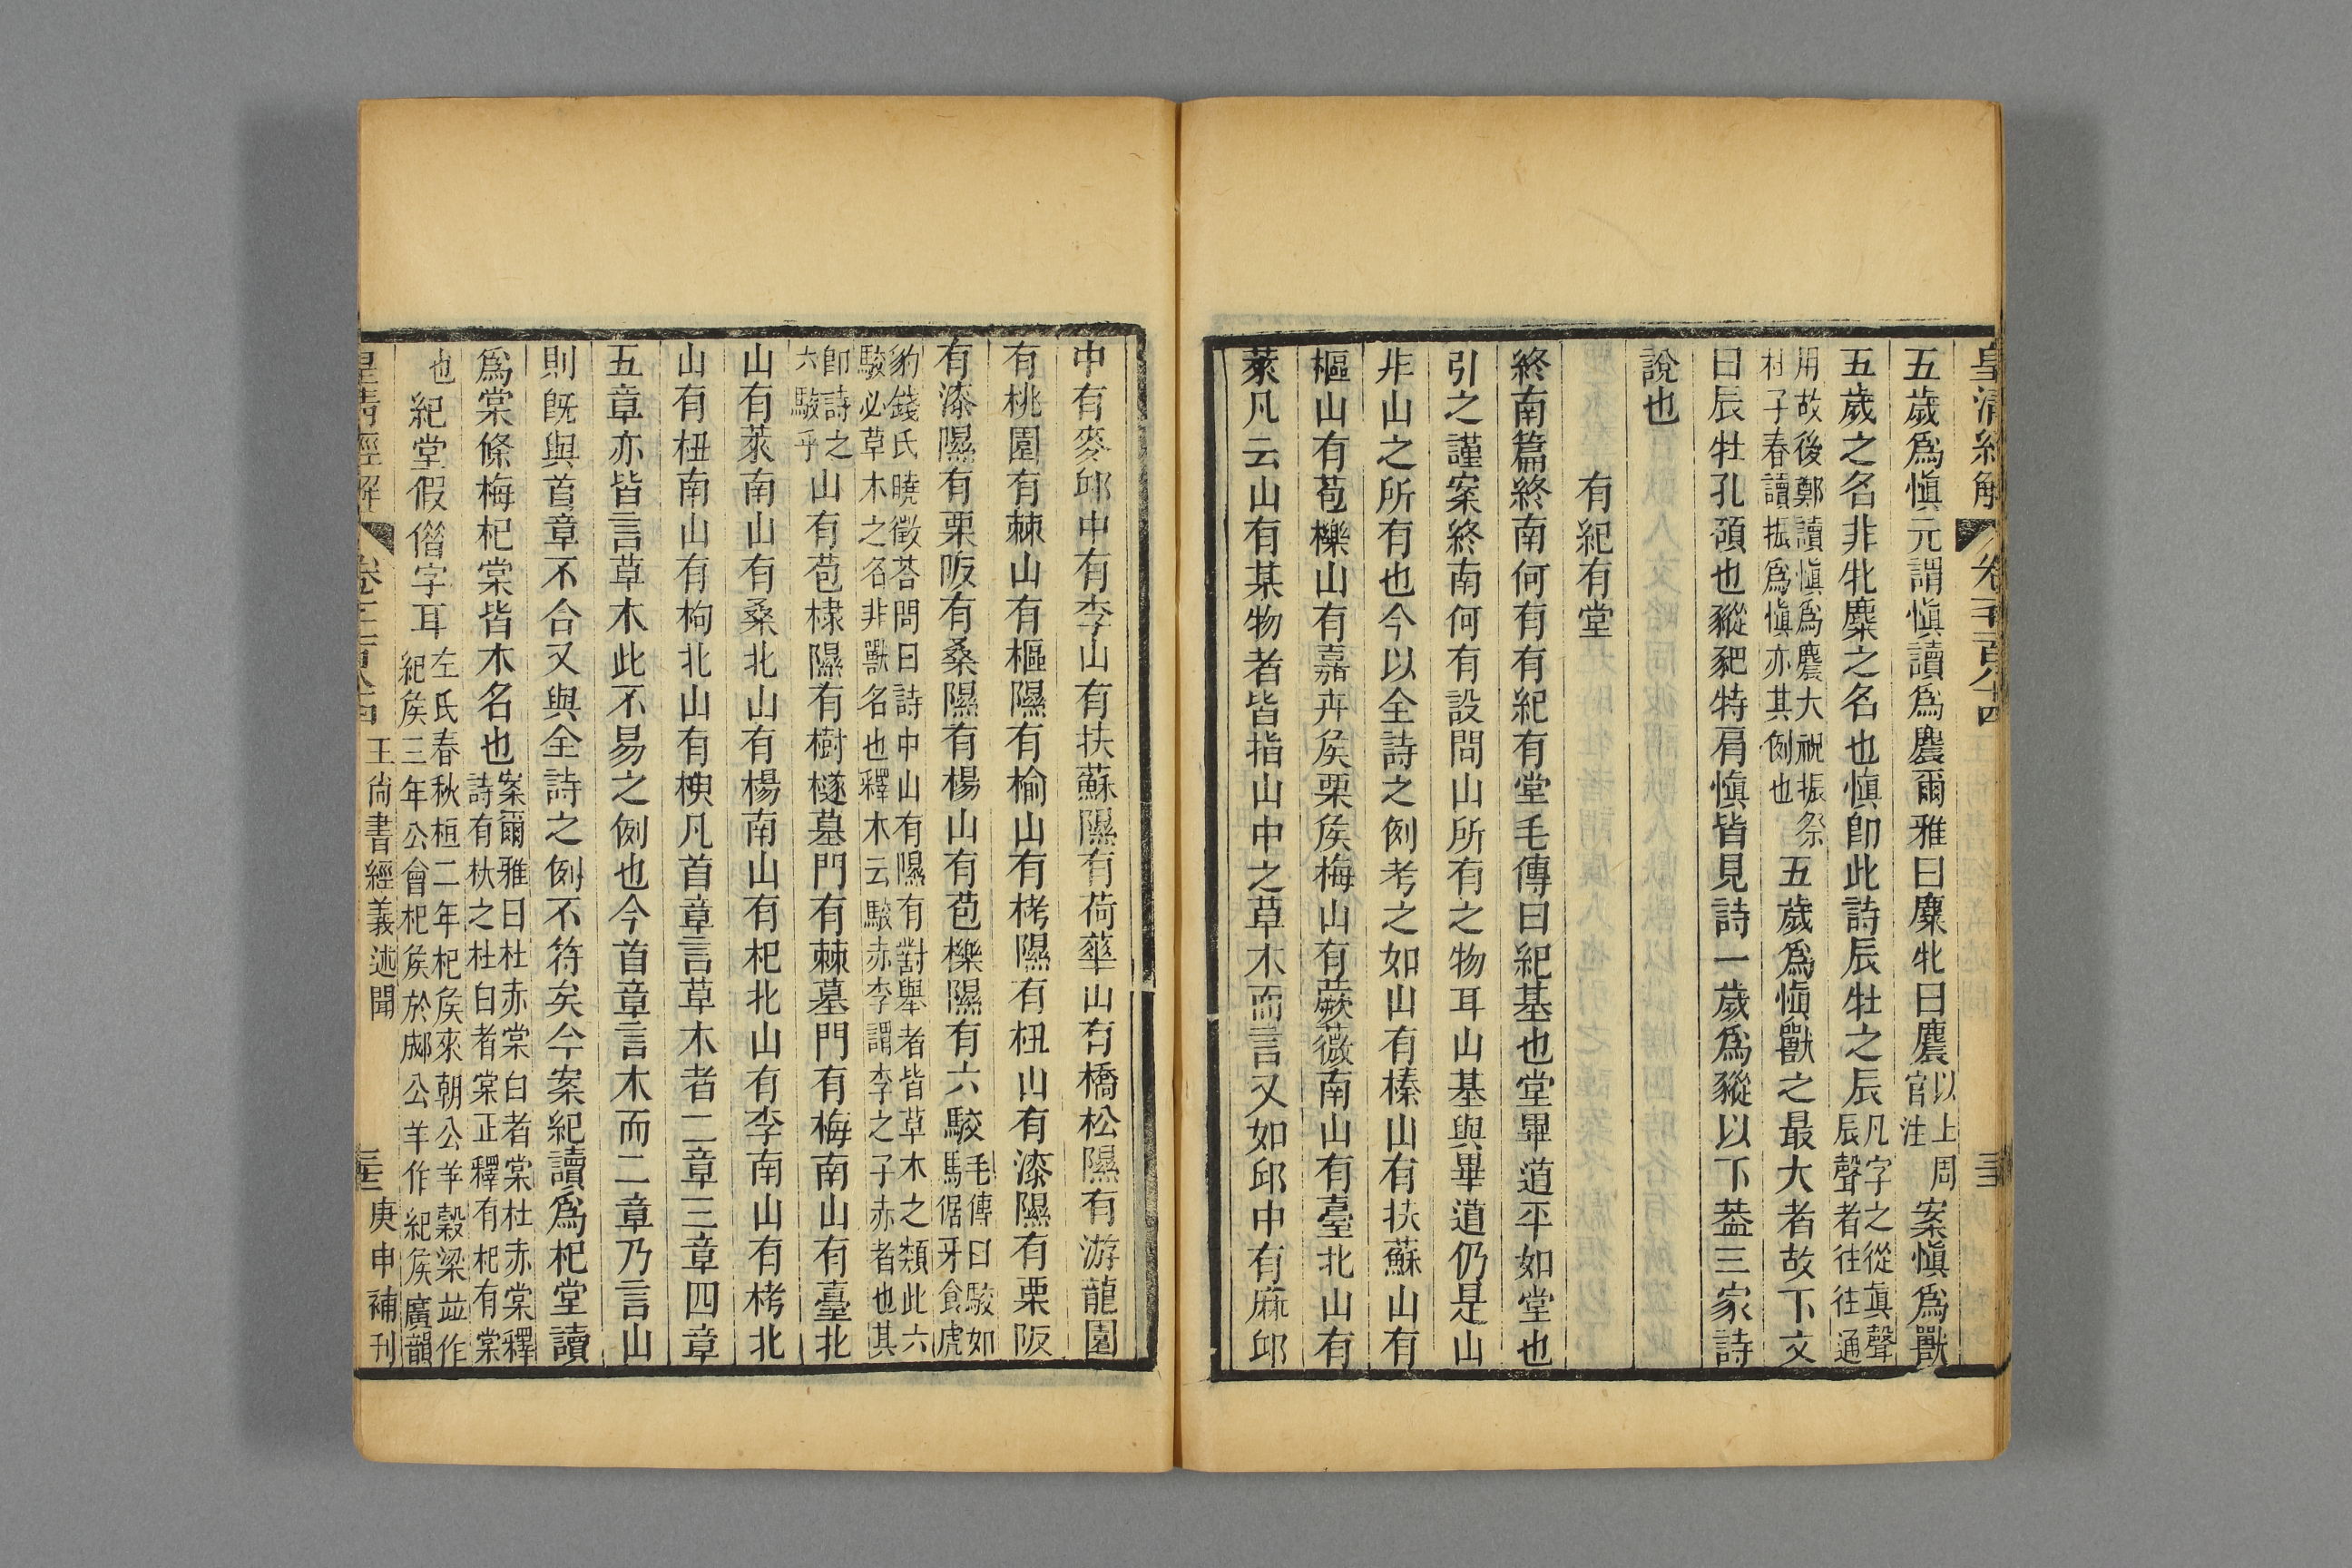 皇清經解 卷一千一百八十四
五歲爲愼元謂愼讀爲麎爾雅曰麋牝曰麎以上周官注案愼爲獸
五歲之名非牝麋之名也愼卽此詩辰牡之辰凡字之從眞聲辰聲者往往通
用故後鄭讀愼爲麎大祝振祭杜子春讀振爲愼亦其例也五歲爲愼獸之最大者故下文
曰辰牡孔碩也豵豝特肩愼皆見詩一歲爲豵以下葢三家詩
說也
有紀有堂
終南篇終南何有有紀有堂毛傳曰紀基也堂畢道平如堂也
引之謹案終南何有設問山所有之物耳山基與畢道仍是山
非山之所有也今以全詩之例考之如山有榛山有扶蘇山有
樞山有苞櫟山有嘉卉矦栗矦梅山有蕨薇南山有臺北山有
萊凡云山有某物者皆指山中之草木而言又如邱中有麻邱
中有麥邱中有李山有扶蘇隰有荷華山有橋松隰有游龍園
有桃園有棘山有樞隰有榆山有栲隰有杻山有漆隰有栗阪
有漆隰有栗阪有桑隰有楊山有苞櫟隰有六駮毛傳曰駮如馬倨牙食虎
豹錢氏曉徵荅問曰詩中山有隰有對舉者皆草木之類此六駮必草木之名非獸名也釋木云駮赤李謂李之子赤者也其
卽詩之六駮乎山有苞棣隰有樹檖墓門有棘墓門有梅南山有臺北
山有萊南山有桑北山有楊南山有杞北山有李南山有栲北
山有杻南山有枸北山有楰凡首章言草木者二章三章四章
五章亦皆言草木此不易之例也今首章言木而二章乃言山
則旣與首章不合又與全詩之例不符矣今案紀讀爲杞堂讀
爲棠條梅杞棠皆木名也案爾雅曰杜赤棠白者棠杜赤棠釋詩有杕之杜白者棠正釋有杞有棠
也紀堂假借字耳左氏春秋桓二年杞矦來朝公羊穀梁竝作紀矦三年公會杞矦於郕公羊作紀矦廣韻
皇清經解 卷一千一百八十四 王尚書經義述聞 庚申補刊